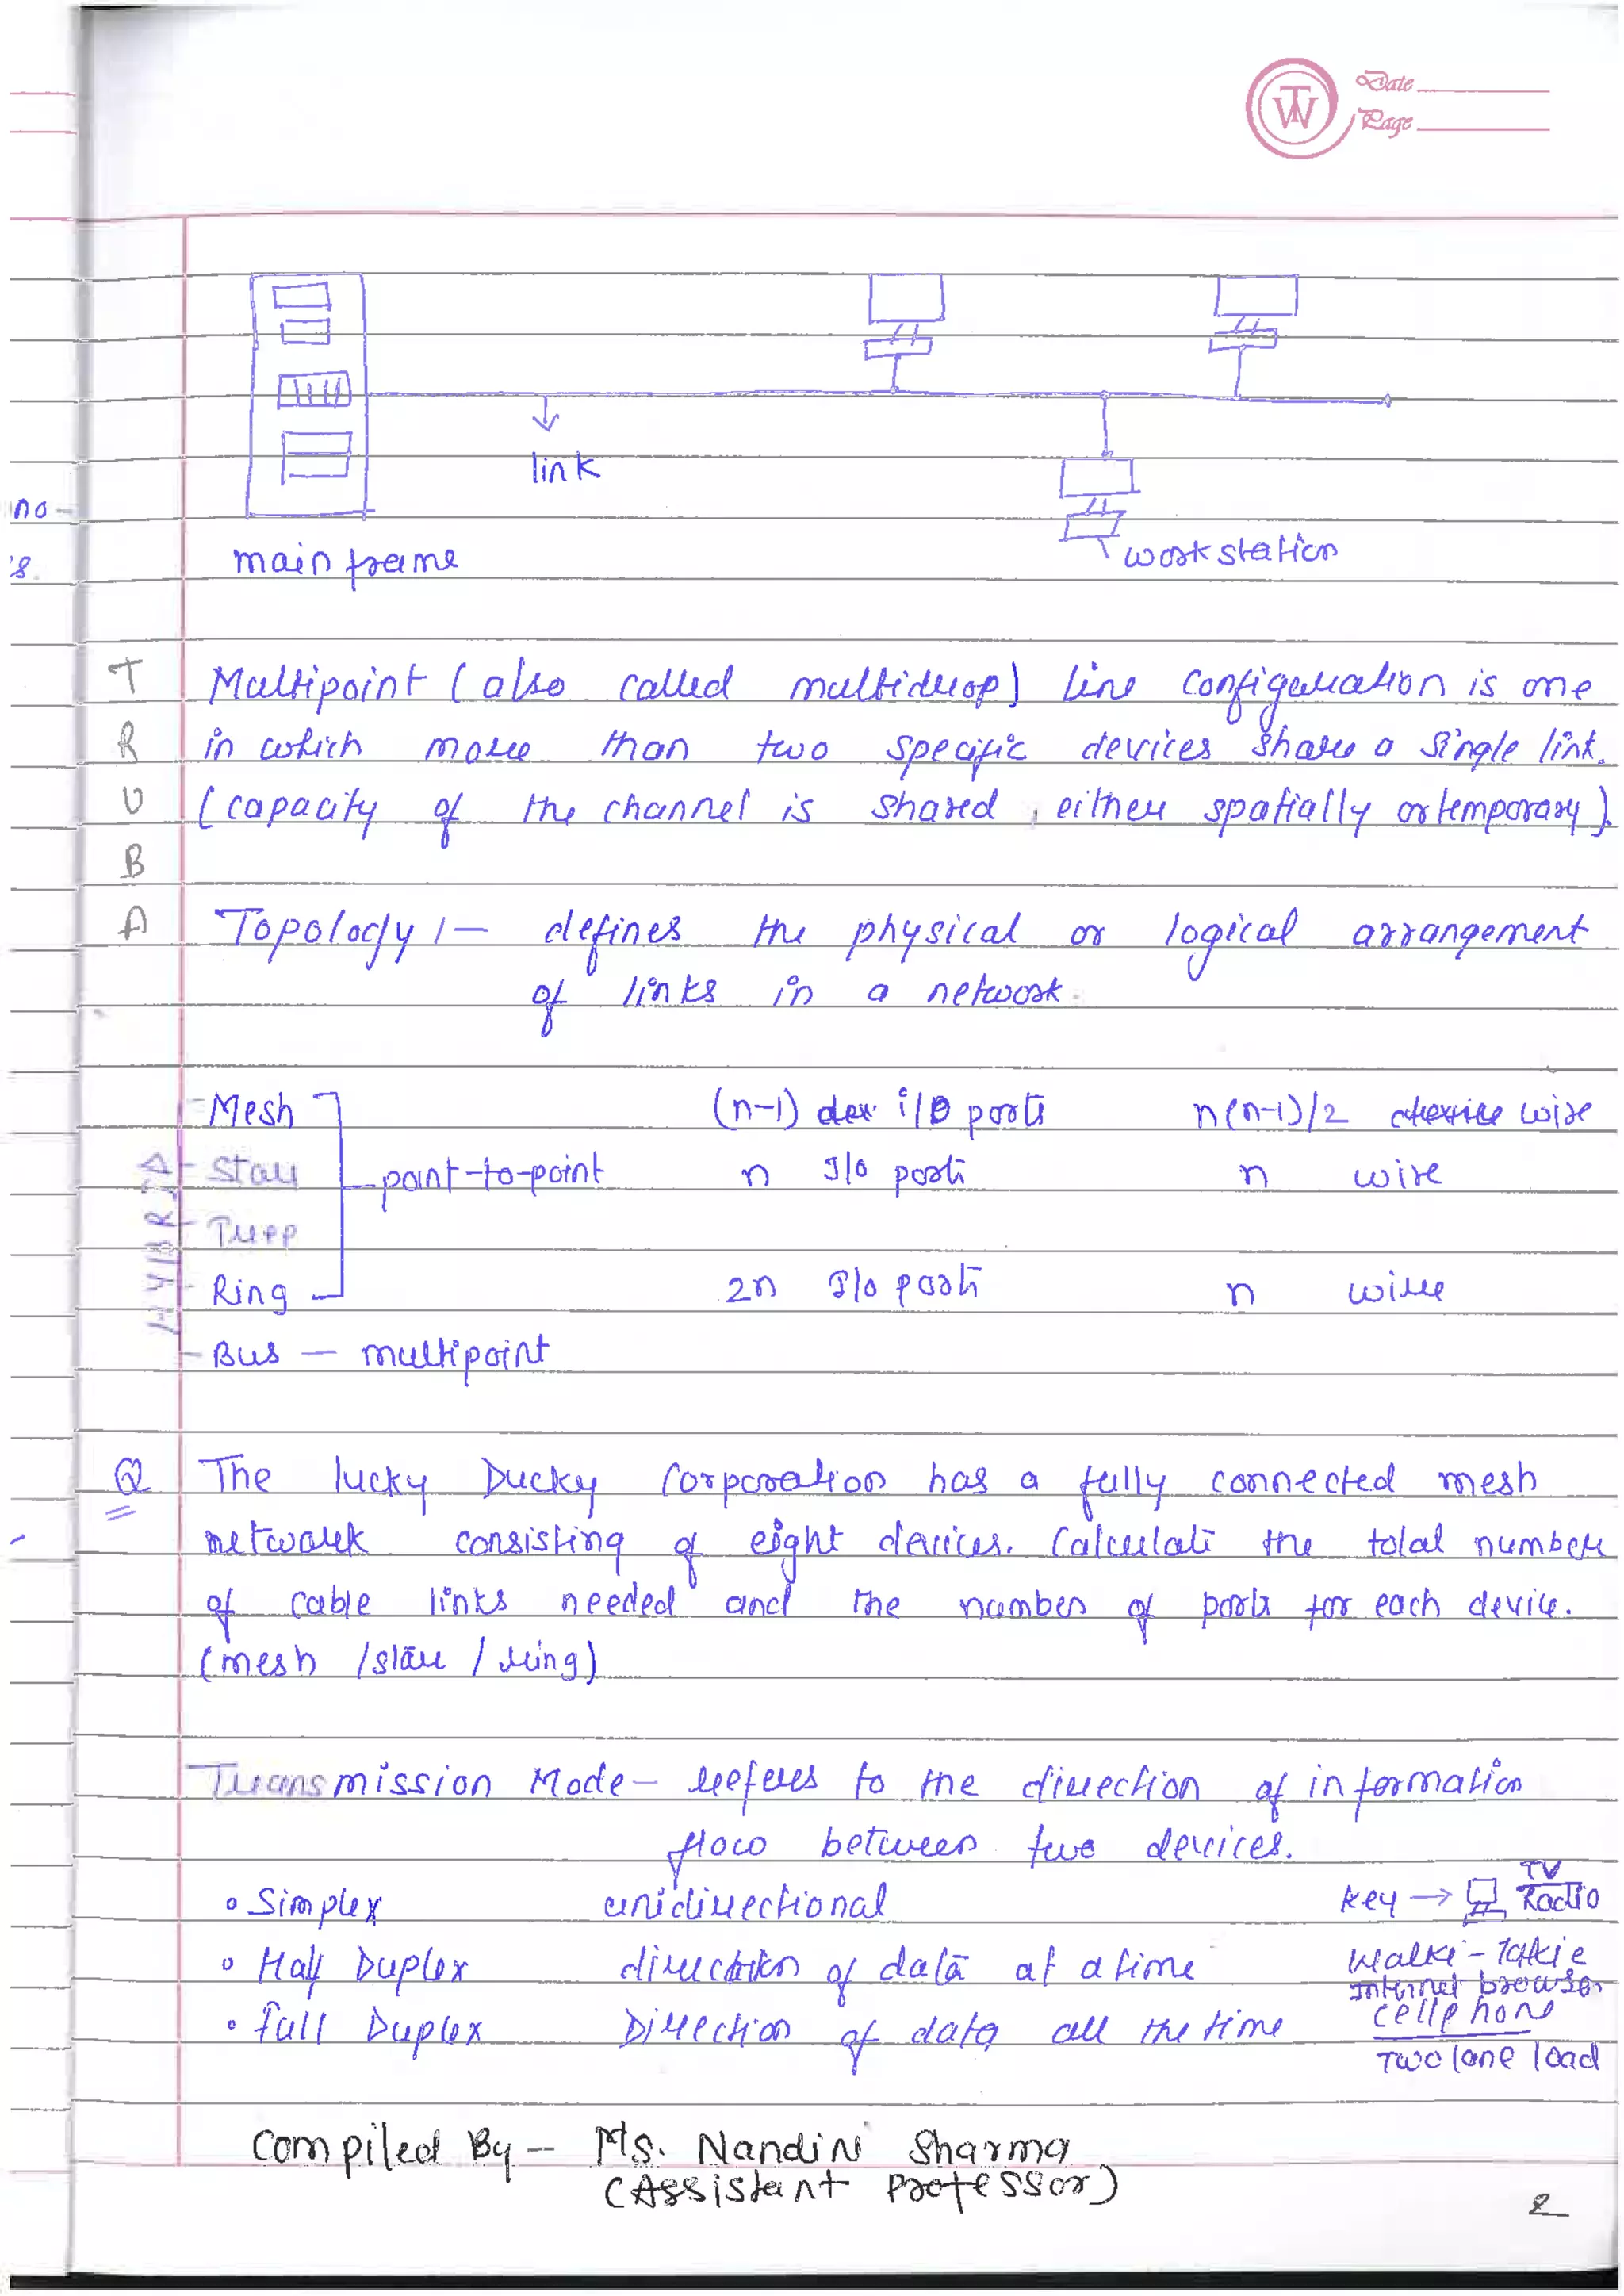 Date
Page
TW
link
no-
's.
main frame
workstation
T
R
U
B
A
Multipoint (also called multidrop) line configuration is one
in which more than two specific devices share a single link.
(capacity of the channel is shared, either spatially or temporary).
Topology :- defines the physical or logical arrangement
of links in a network.
HYBRID
Mesh (n-1) i/o ports n(n-1)/2 wire
Star point-to-point n I/o ports n wire
Tree
Ring 2n I/o ports n wire
Bus - multipoint
Q The lucky Ducky Corporation has a fully connected mesh
network consisting of eight devices. Calculate the total number
of cable links needed and the number of ports for each device.
(mesh / star / ring)
Transmission Mode - refers to the direction of information
flow between two devices.
• Simplex unidirectional Key → TV Radio
• Half Duplex direction of data at a time Walki-Talkie
Internet browser
• full Duplex Direction of data all the time cellphone
Two lane load
Compiled By - Ms. Nandini Sharma
(Assistant Professor)
2